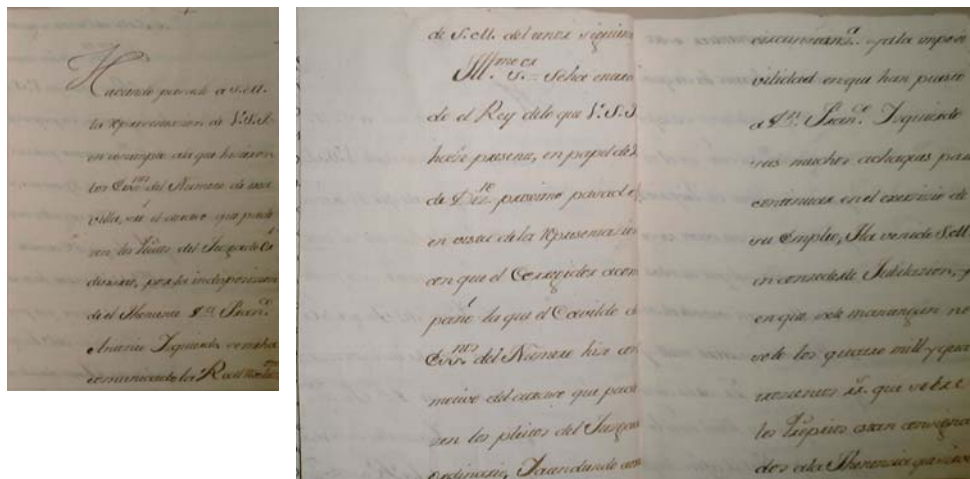 Haviendo pasado a S.M.
la representacion de V.S.I.
en consulta, a la que hicieron
los Essnos del Numero de esta
villa, el atraso que pade
zen los Pleitos del Juzgado
dinario, por la indisposicion
de el Theniente Dn. Franco.
Antonio Izquierdo, se me ha
comunicado la Real
de S.M. del tenor siguien
Illmo. Sor. = Se ha entera
do el Rey de lo que V.S.I.
hace presente, en papel de
de Dize. proximo pasado,
en vista de la representacion
con que el Corregidor acom
pañó la que el Cavildo de
Essnos del Numero hizo con
motivo del atraso que pade
zen los pleitos del Juzgado
ordinario,
circunstancia. y a la imposi
vilidad en que han puesto
a Dn. Franco. Izquierdo
sus muchos achaques para
continuar en el exercicio de
su Empleo, Ha venido S.M.
en concederle Jubilacion, y
en que se le mantengan no
solo los quatro mill y qua
trocientos rs. que sobre
los Propios estan consigna
dos a la Thenencia